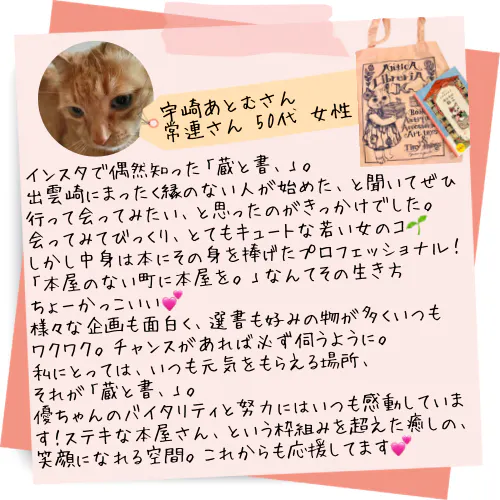 宇崎あとむさん
常連さん 50代 女性
Antica
Libreria
インスタで偶然知った「蔵と書、」。
出雲崎にまったく縁のない人が始めた、と聞いてぜひ
行って会ってみたい、と思ったのがきっかけでした。
会ってみてびっくり、とてもキュートな若い女のコ🌱
しかし中身は本にその身を捧げたプロフェッショナル！
「本屋のない町に本屋を。」なんてその生き方
ちょーかっこいい💕
様々な企画も面白く、選書も好みの物が多くいつも
ワクワク。チャンスがあれば必ず伺うように。
私にとっては、いつも元気をもらえる場所、
それが「蔵と書、」。
優ちゃんのバイタリティと努力にはいつも感動していま
す！ステキな本屋さん、という枠組みを超えた癒しの、
笑顔になれる空間。これからも応援してます💕